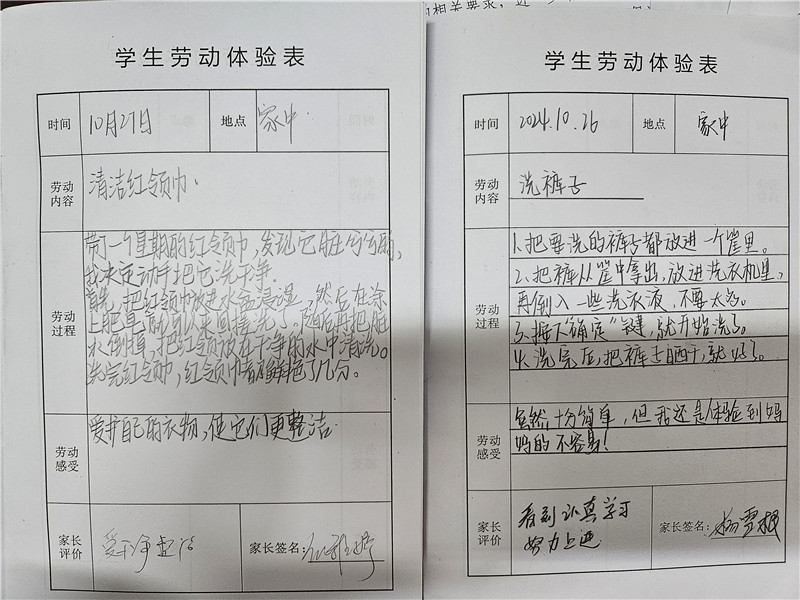 的相关要求，近
学生劳动体验表
时间 10月27日 地点 家中.
劳动内容 清洁红领巾.
劳动过程
带了一个星期的红领巾，发现它脏兮兮的，
我决定动手把它洗干净.
首先，把红领巾放进水盆浸湿，然后在涂
上肥皂
水倒掉，把红领 在干净的水中清洗。
洗完红领巾，红领巾 鲜艳了几分。
劳动感受 爱护自己的衣物，使它们更整洁.
家长评价 爱干净 家长签名：
学生劳动体验表
时间 2024.10.26 地点 家中
劳动内容 洗裤子
劳动过程
1.把要洗的裤子都放进一个篮里。
2.把裤从篮中拿出，放进洗衣机里，
再倒入一些洗衣液，不要太多。
3.按下“确定”键，就开始洗了。
4.洗完后，把裤子晒干，就好了。
劳动感受
虽然十分简单，但我还是体验到妈
妈的不容易！
家长评价
看到认真学习
努力上进
家长签名：杨雪